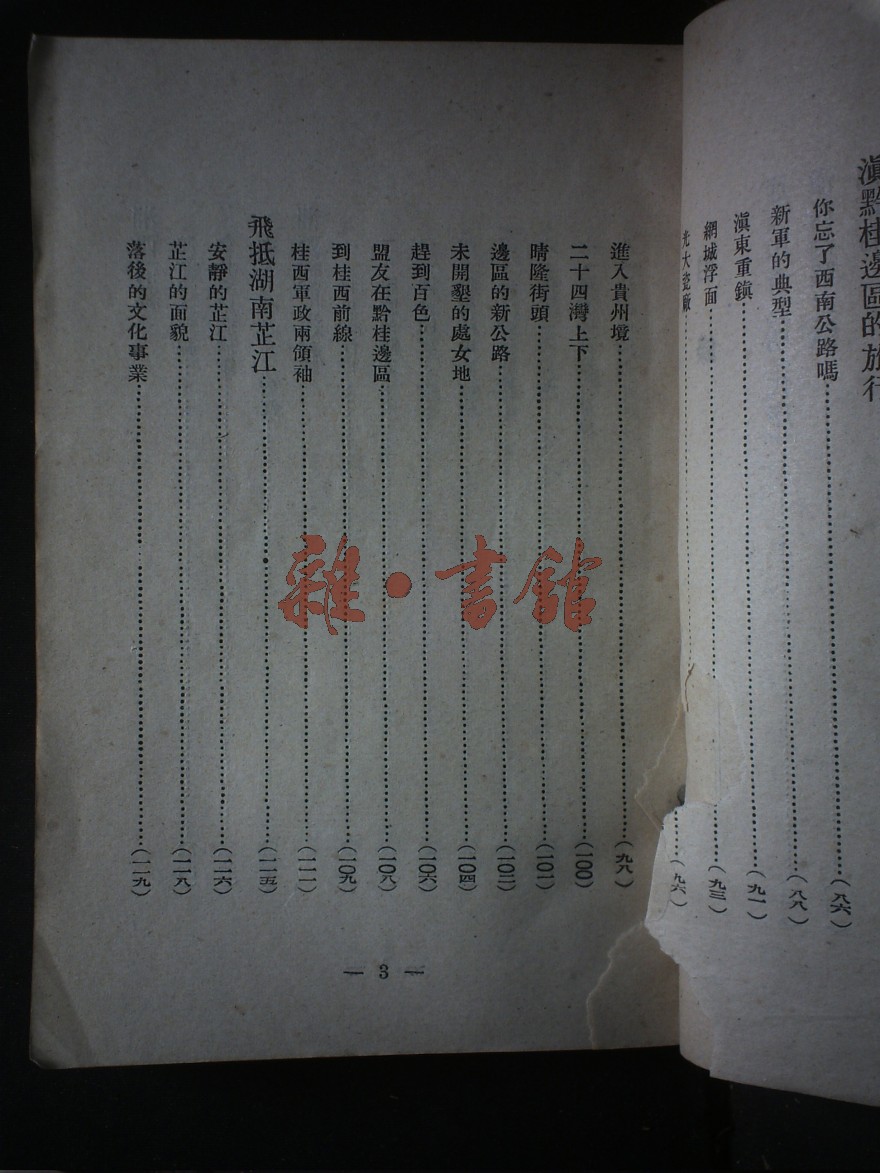 滇黔桂邊區的旅行
你忘了西南公路嗎……(八六)
新軍的典型……(八八)
滇東重鎮……(九一)
網城浮面……(九三)
光大瓷廠……(九六)
進入貴州境……(九八)
二十四灣上下……(一〇〇)
晴隆街頭……(一〇一)
邊區的新公路……(一〇二)
未開墾的處女地……(一〇四)
趕到百色……(一〇六)
盟友在黔桂邊區……(一〇八)
到桂西前線……(一〇九)
桂西軍政兩領袖……(一一一)
飛抵湖南芷江……(一一五)
安靜的芷江……(一一六)
芷江的面貌……(一一八)
落後的文化事業……(一一九)
— 3 —
雜·書館